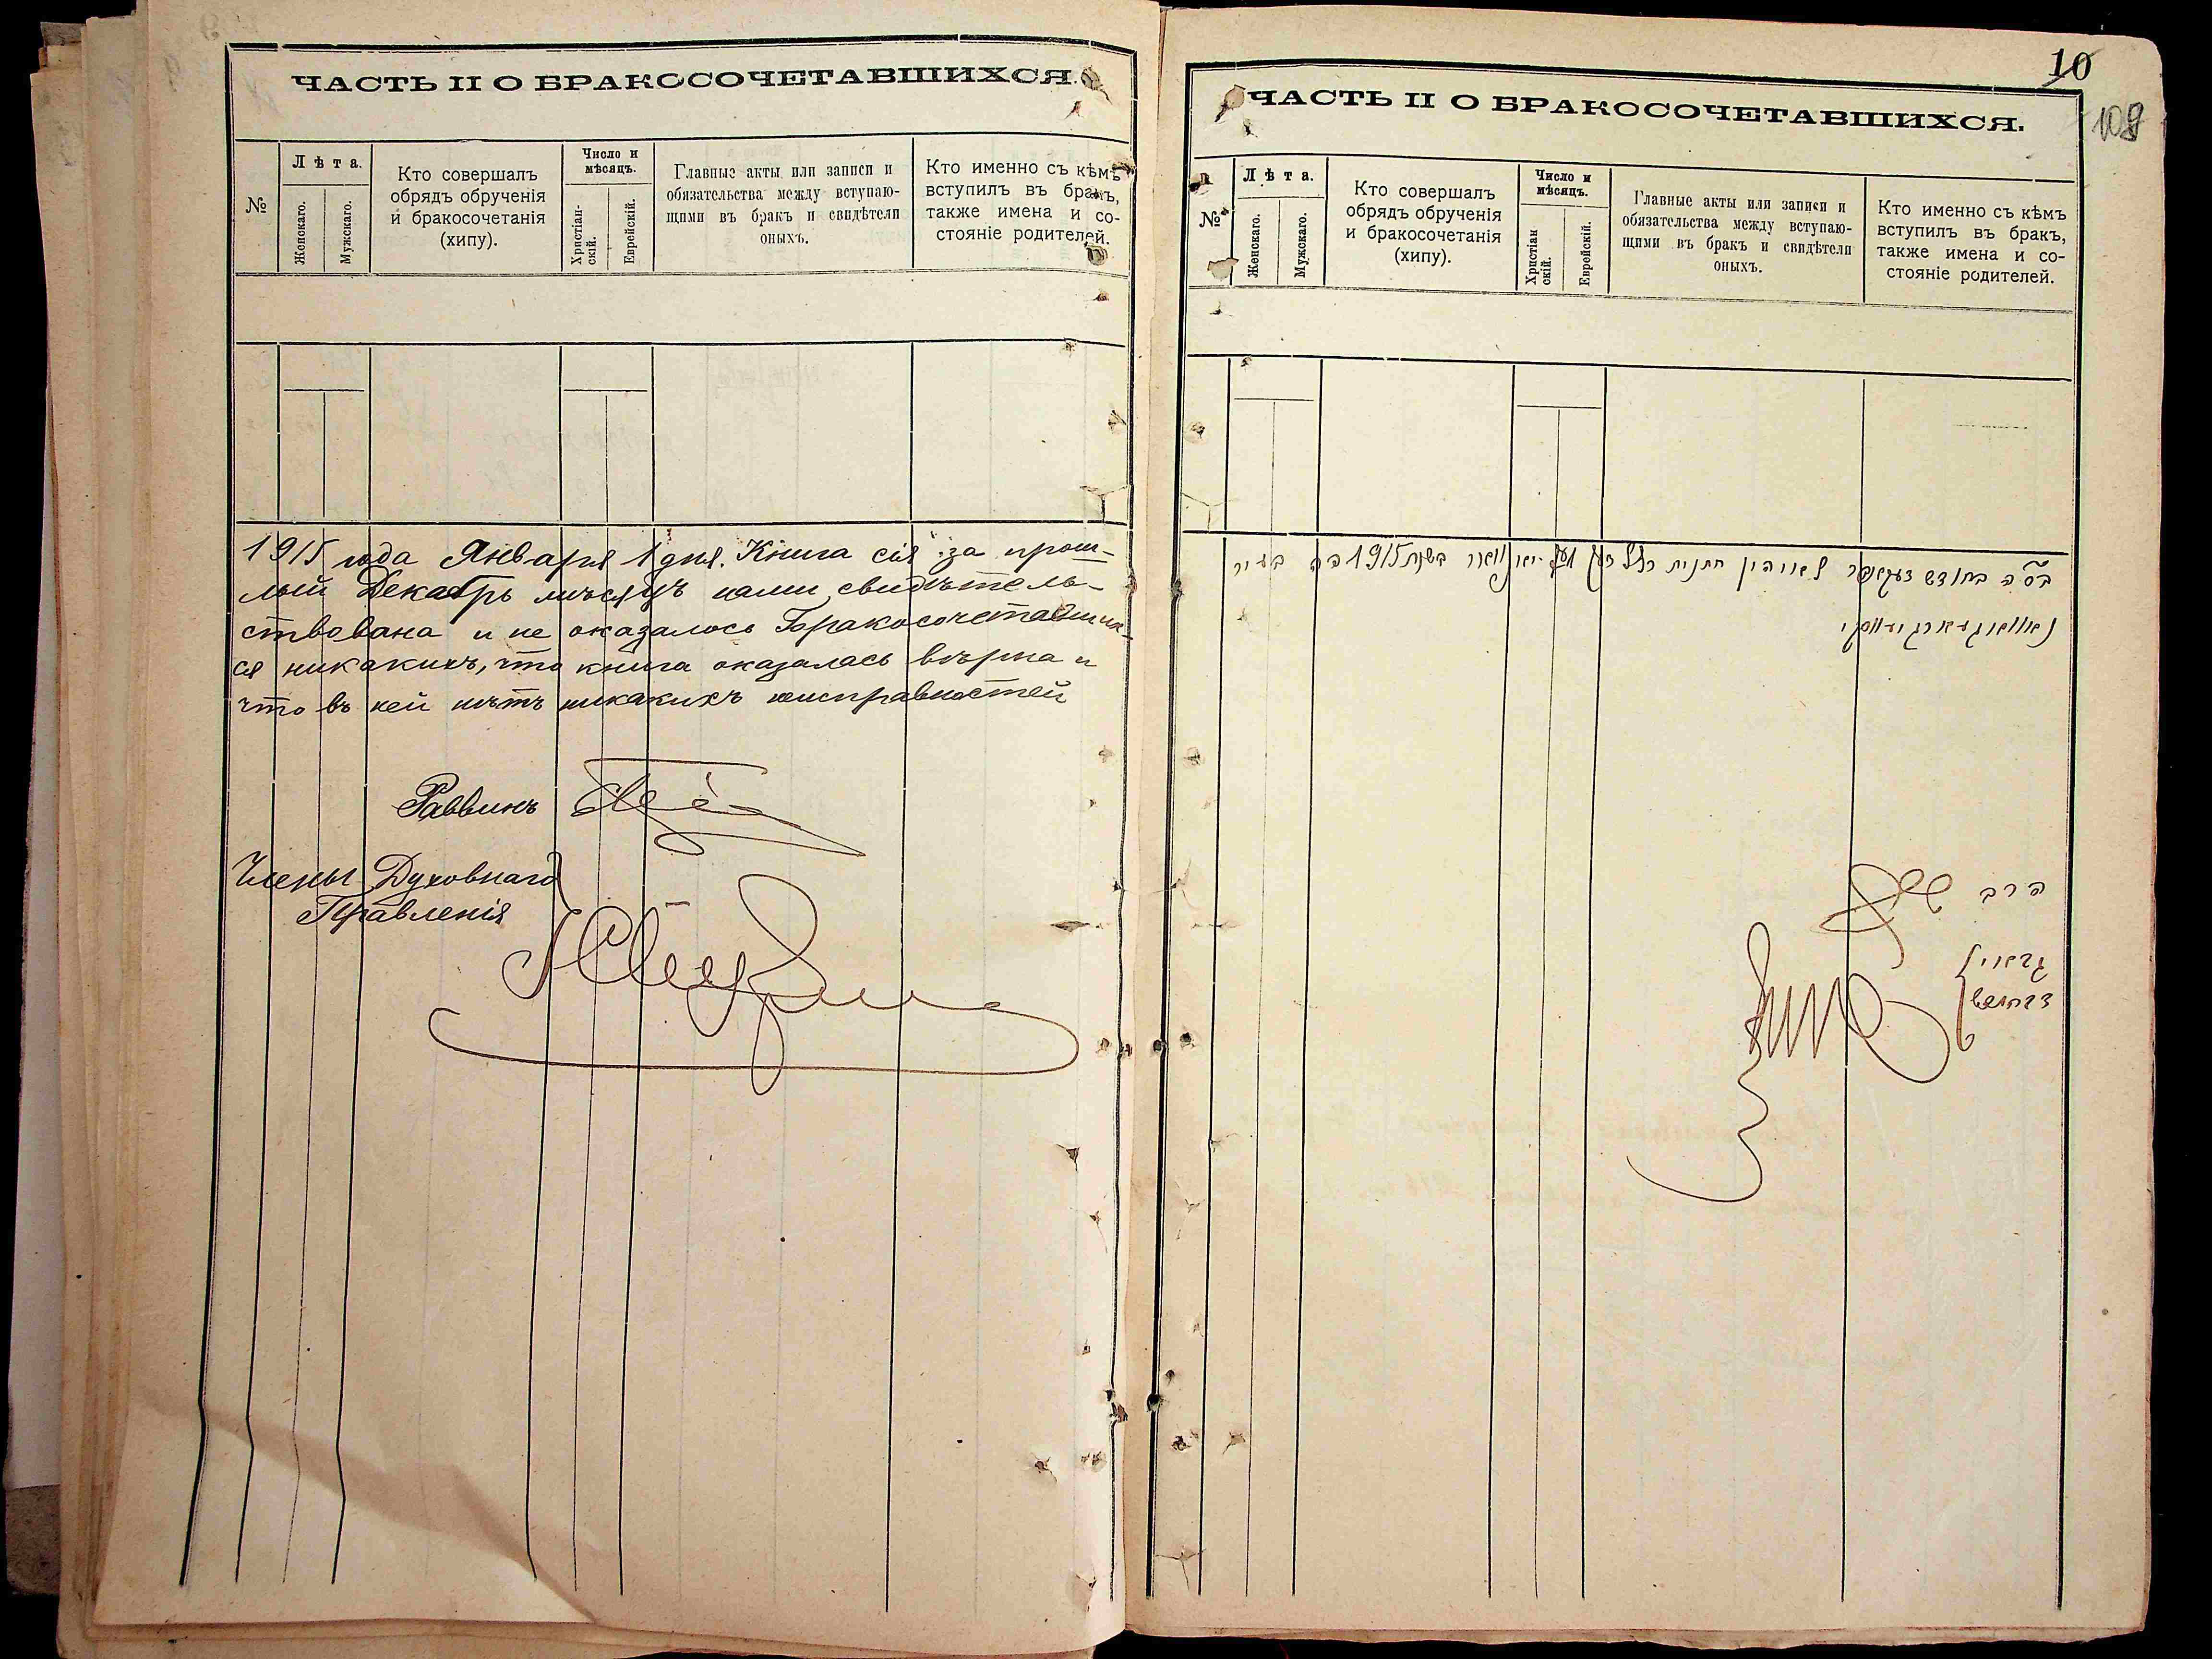 ЧАСТЬ II О БРАКОСОЧЕТАВШИХСЯ.
№
Лѣта.
Женскаго.
Мужскаго.
Кто совершалъ
обрядъ обрученія
и бракосочетанія
(хипу).
Число и
мѣсяцъ.
Христіан-
скій.
Еврейскій.
Главныя акты или записи и
обязательства между вступаю-
щими въ бракъ и свидѣтели
оныхъ.
Кто именно съ кѣмъ
вступилъ въ бракъ,
также имена и со-
стояніе родителей.
1915 года Января 1 дня. Книга сія за прош-
лый Декабрь мѣсяцъ нами свидѣтель-
ствована и не оказалось Бракосочетавших-
ся никакихъ, что книга оказалась вѣрна и
что въ ней нѣтъ никакихъ неисправностей
Раввинъ
Члены Духовнаго
Правленія
10
108
ЧАСТЬ II О БРАКОСОЧЕТАВШИХСЯ.
№
Лѣта.
Женскаго.
Мужскаго.
Кто совершалъ
обрядъ обрученія
и бракосочетанія
(хипу).
Число и
мѣсяцъ.
Христіан
скій.
Еврейскій.
Главные акты или записи и
обязательства между вступаю-
щими въ бракъ и свидѣтели
оныхъ.
Кто именно съ кѣмъ
вступилъ въ бракъ,
также имена и со-
стояніе родителей.
בחודש חתונות כלל יאנוואר בשנת 1915 בעיר
הרב